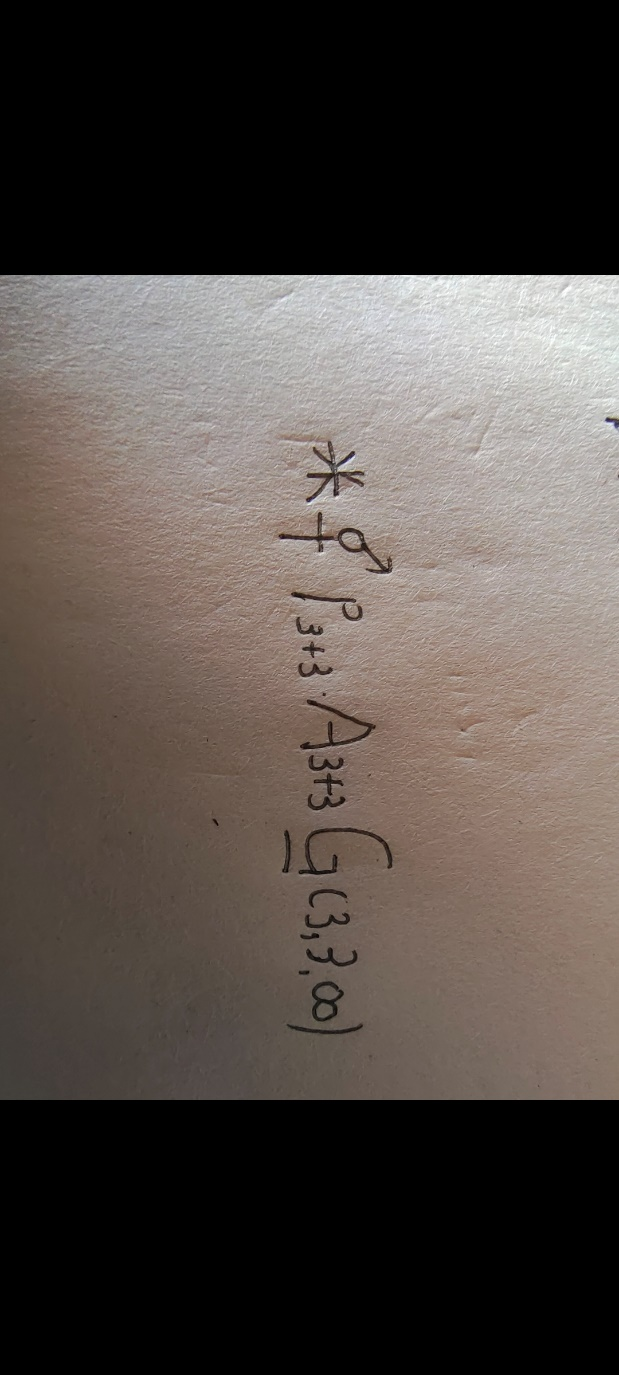 * ⚥ P₃₊₃ A₃₊₃ G̲(3,3,∞)